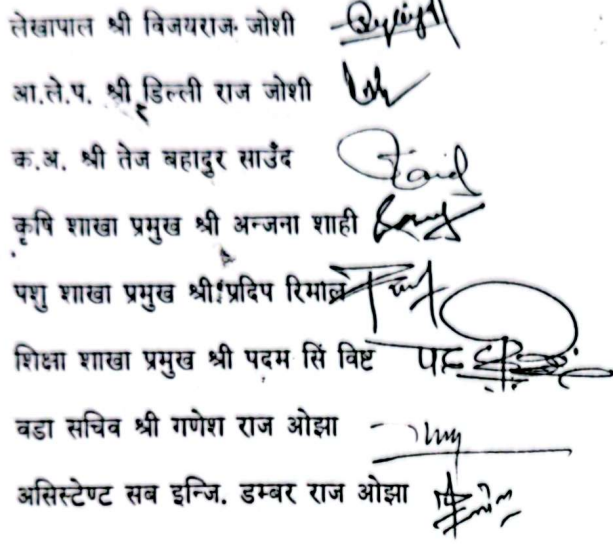 लेखापाल श्री विजयराज जोशी
आ.ले.प. श्री डिल्ली राज जोशी
क.अ. श्री तेज बहादुर साउँद
कृषि शाखा प्रमुख श्री अन्जना शाही
पशु शाखा प्रमुख श्री प्रदिप रिमाल
शिक्षा शाखा प्रमुख श्री पदम सिं विष्ट
वडा सचिव श्री गणेश राज ओझा
असिस्टेण्ट सब इन्जि. डम्बर राज ओझा